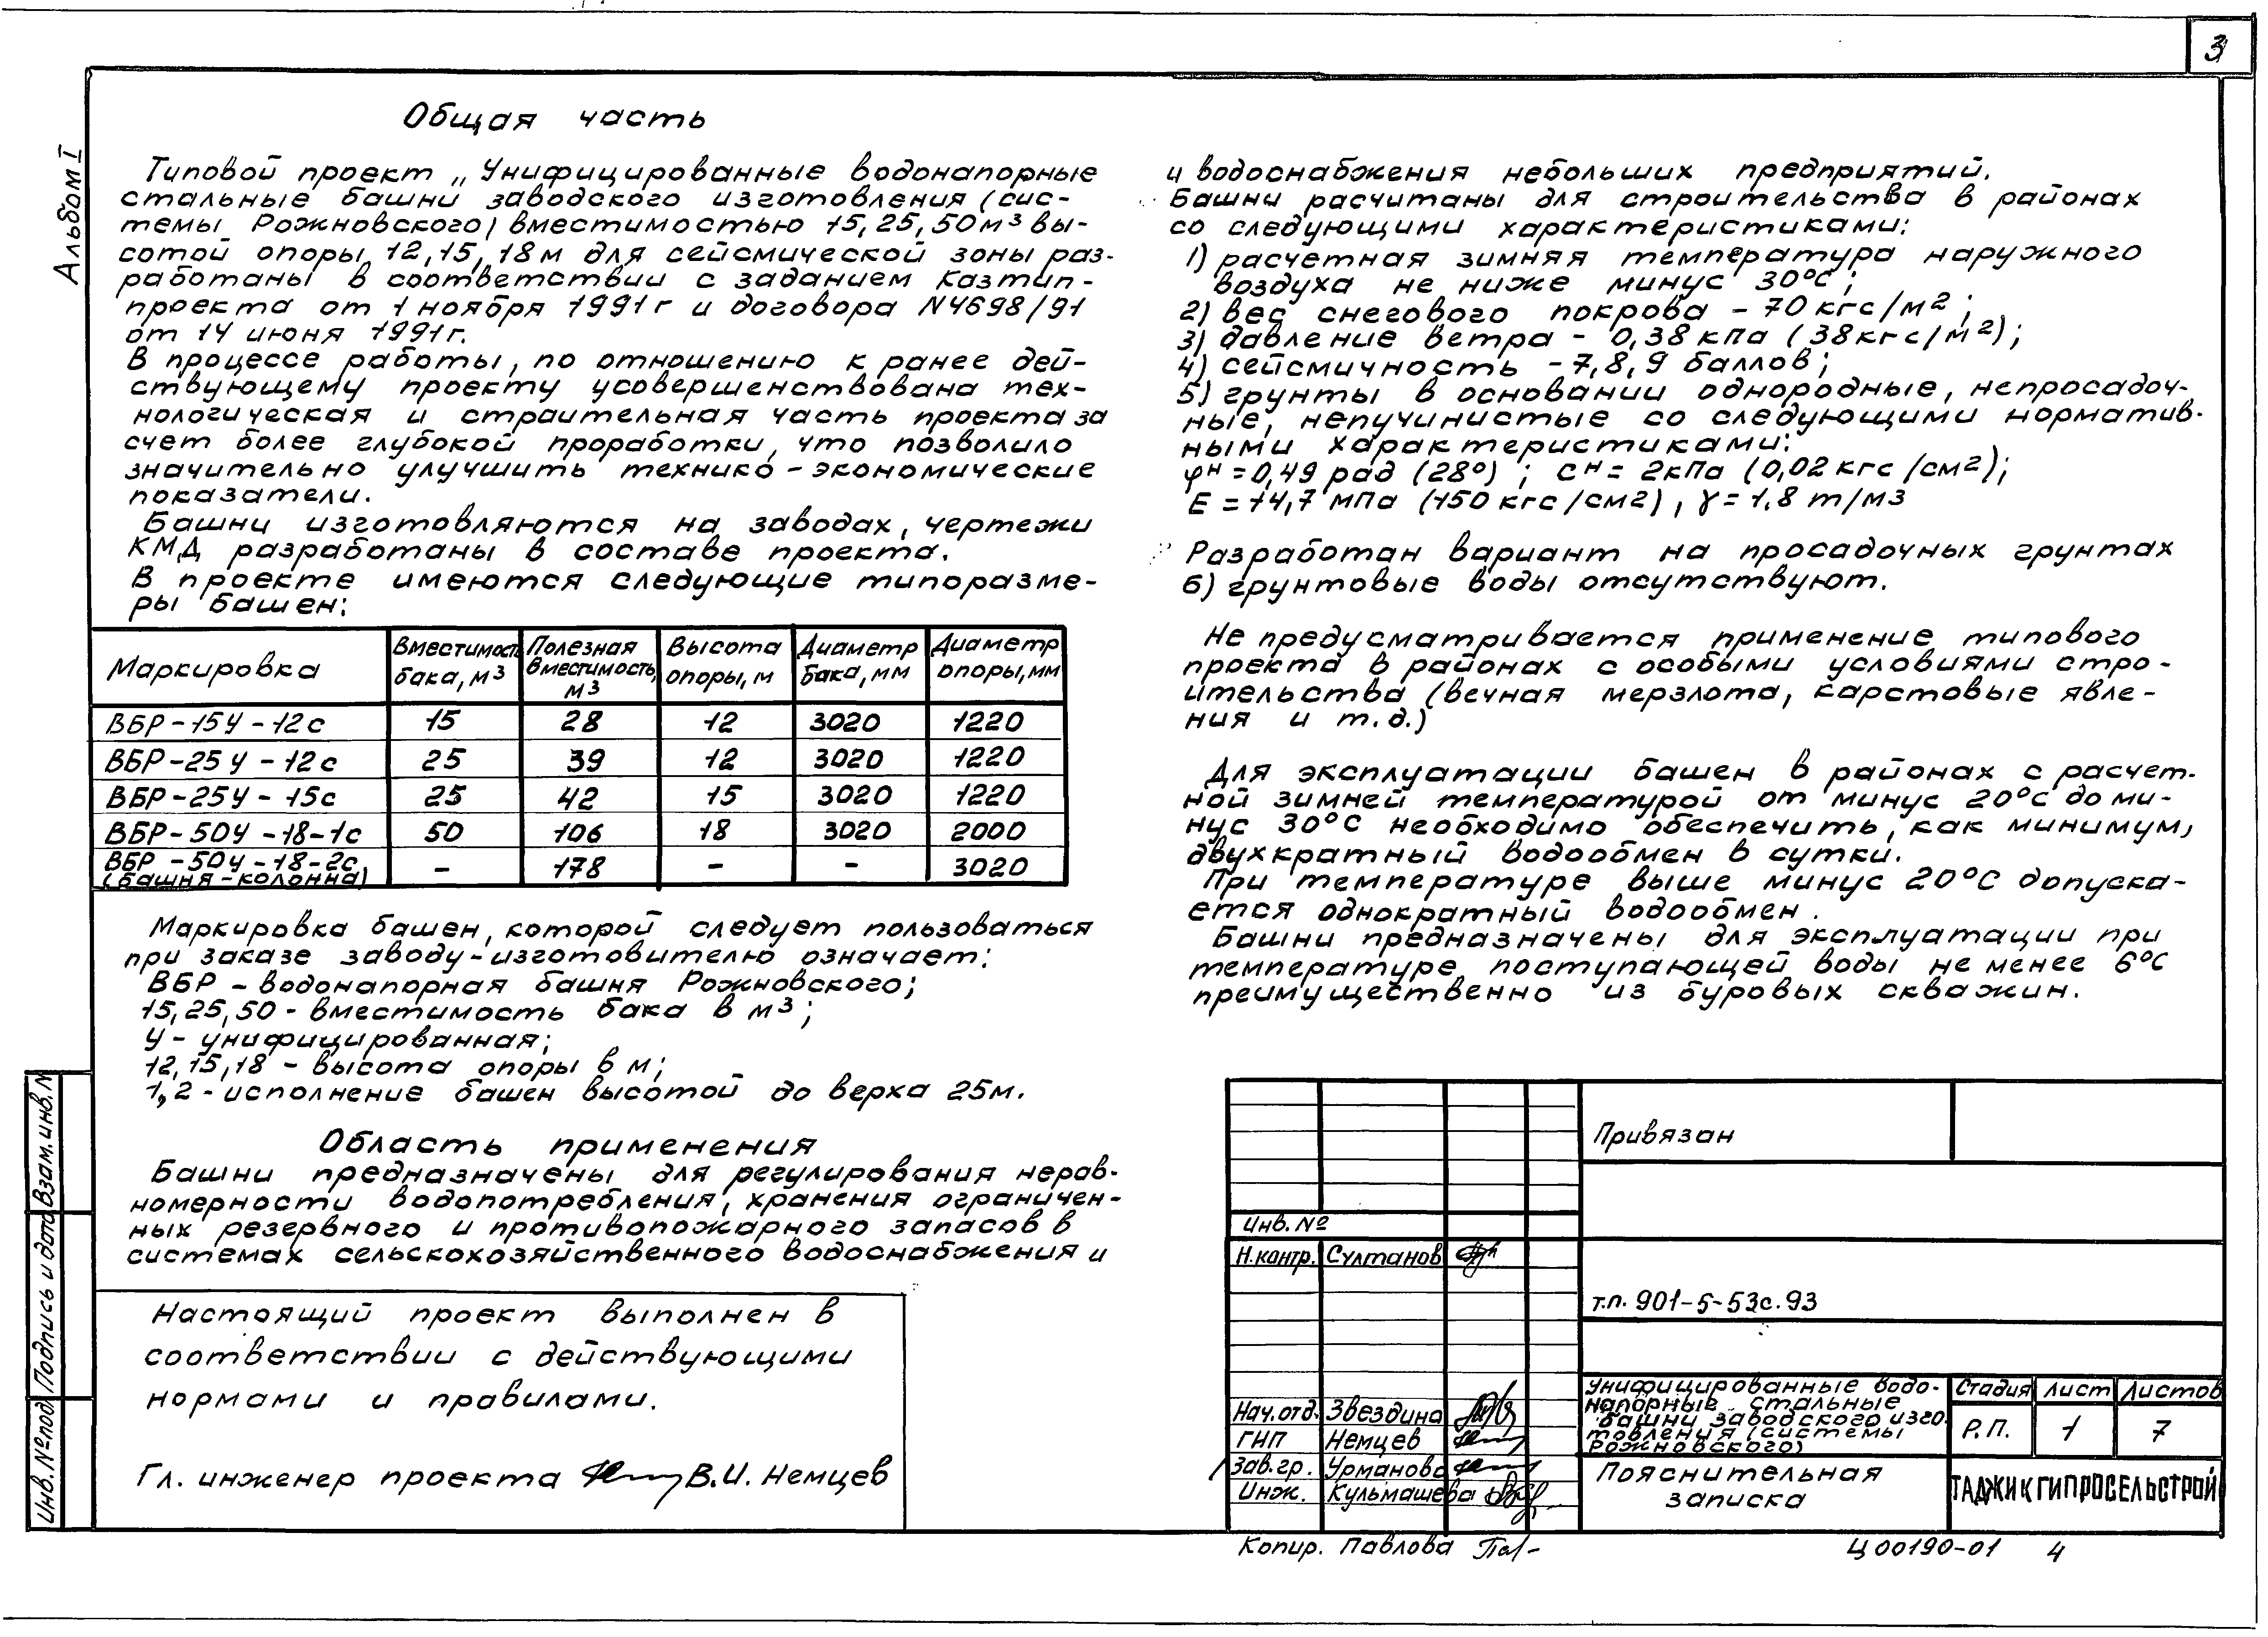 3
Альбом I
Общая часть
Типовой проект „Унифицированные водонапорные
стальные башни заводского изготовления (сис-
темы Рожновского) вместимостью 15, 25, 50 м³ вы-
сотой опоры 12, 15, 18 м для сейсмической зоны раз-
работаны в соответствии с заданием Казтип-
проекта от 1 ноября 1991 г и договора N4698/91
от 14 июня 1991г.
В процессе работы, по отношению к ранее дей-
ствующему проекту усовершенствована тех-
нологическая и строительная часть проекта за
счет более глубокой проработки, что позволило
значительно улучшить технико-экономические
показатели.
Башни изготовляются на заводах, чертежи
КМД разработаны в составе проекта.
В проекте имеются следующие типоразме-
ры башен:
Маркировка | Вместимость бака, м³ | Полезная вместимость, м³ | Высота опоры, м | Диаметр бака, мм | Диаметр опоры, мм
ВБР-15У-12с | 15 | 28 | 12 | 3020 | 1220
ВБР-25У-12с | 25 | 39 | 12 | 3020 | 1220
ВБР-25У-15с | 25 | 42 | 15 | 3020 | 1220
ВБР-50У-18-1с | 50 | 106 | 18 | 3020 | 2000
ВБР-50У-18-2с (башня-колонна) | - | 178 | - | - | 3020
Маркировка башен, которой следует пользоваться
при заказе заводу-изготовителю означает:
ВБР - водонапорная башня Рожновского;
15, 25, 50 - вместимость бака в м³;
У - унифицированная;
12, 15, 18 - высота опоры в м;
1, 2 - исполнение башен высотой до верха 25м.
Область применения
Башни предназначены для регулирования нерав-
номерности водопотребления, хранения ограничен-
ных резервного и противопожарного запасов в
системах сельскохозяйственного водоснабжения и
Настоящий проект выполнен в
соответствии с действующими
нормами и правилами.
Гл. инженер проекта В.И. Немцев
и водоснабжения небольших предприятий.
Башни расчитаны для строительства в районах
со следующими характеристиками:
1) расчетная зимняя температура наружного
воздуха не ниже минус 30°С;
2) вес снегового покрова - 70 кгс/м²;
3) давление ветра - 0,38 кПа (38кгс/м²);
4) сейсмичность - 7, 8, 9 баллов;
5) грунты в основании однородные, непросадоч-
ные, непучинистые со следующими норматив-
ными характеристиками:
φн = 0,49 рад (28°); Сн = 2кПа (0,02 кгс/см²);
Е = 14,7 МПа (150 кгс/см2), γ = 1,8 т/м3
Разработан вариант на просадочных грунтах
6) грунтовые воды отсутствуют.
Не предусматривается применение типового
проекта в районах с особыми условиями стро-
ительства (вечная мерзлота, карстовые явле-
ния и т.д.)
Для эксплуатации башен в районах с расчет-
ной зимней температурой от минус 20°С до ми-
нус 30°С необходимо обеспечить, как минимум,
двухкратный водообмен в сутки.
При температуре выше минус 20°С допуска-
ется однократный водообмен.
Башни предназначены для эксплуатации при
температуре поступающей воды не менее 6°С
преимущественно из буровых скважин.
Привязан
Инв. №
Н.контр. Султанов
т.п. 901-5-53с.93
Нач.отд. Звездина
ГИП Немцев
Зав.гр. Урманова
Инж. Кульмашева
Унифицированные водо-
напорные стальные
башни заводского изго-
товления (системы
Рожновского)
Стадия | Лист | Листов
Р.П. | 1 | 7
Пояснительная
записка
ТАДЖИКГИПРОСЕЛЬСТРОЙ
Копир. Павлова
Ц00190-01 4
Взам.инв.N
Подпись и дата
Инв.№подл